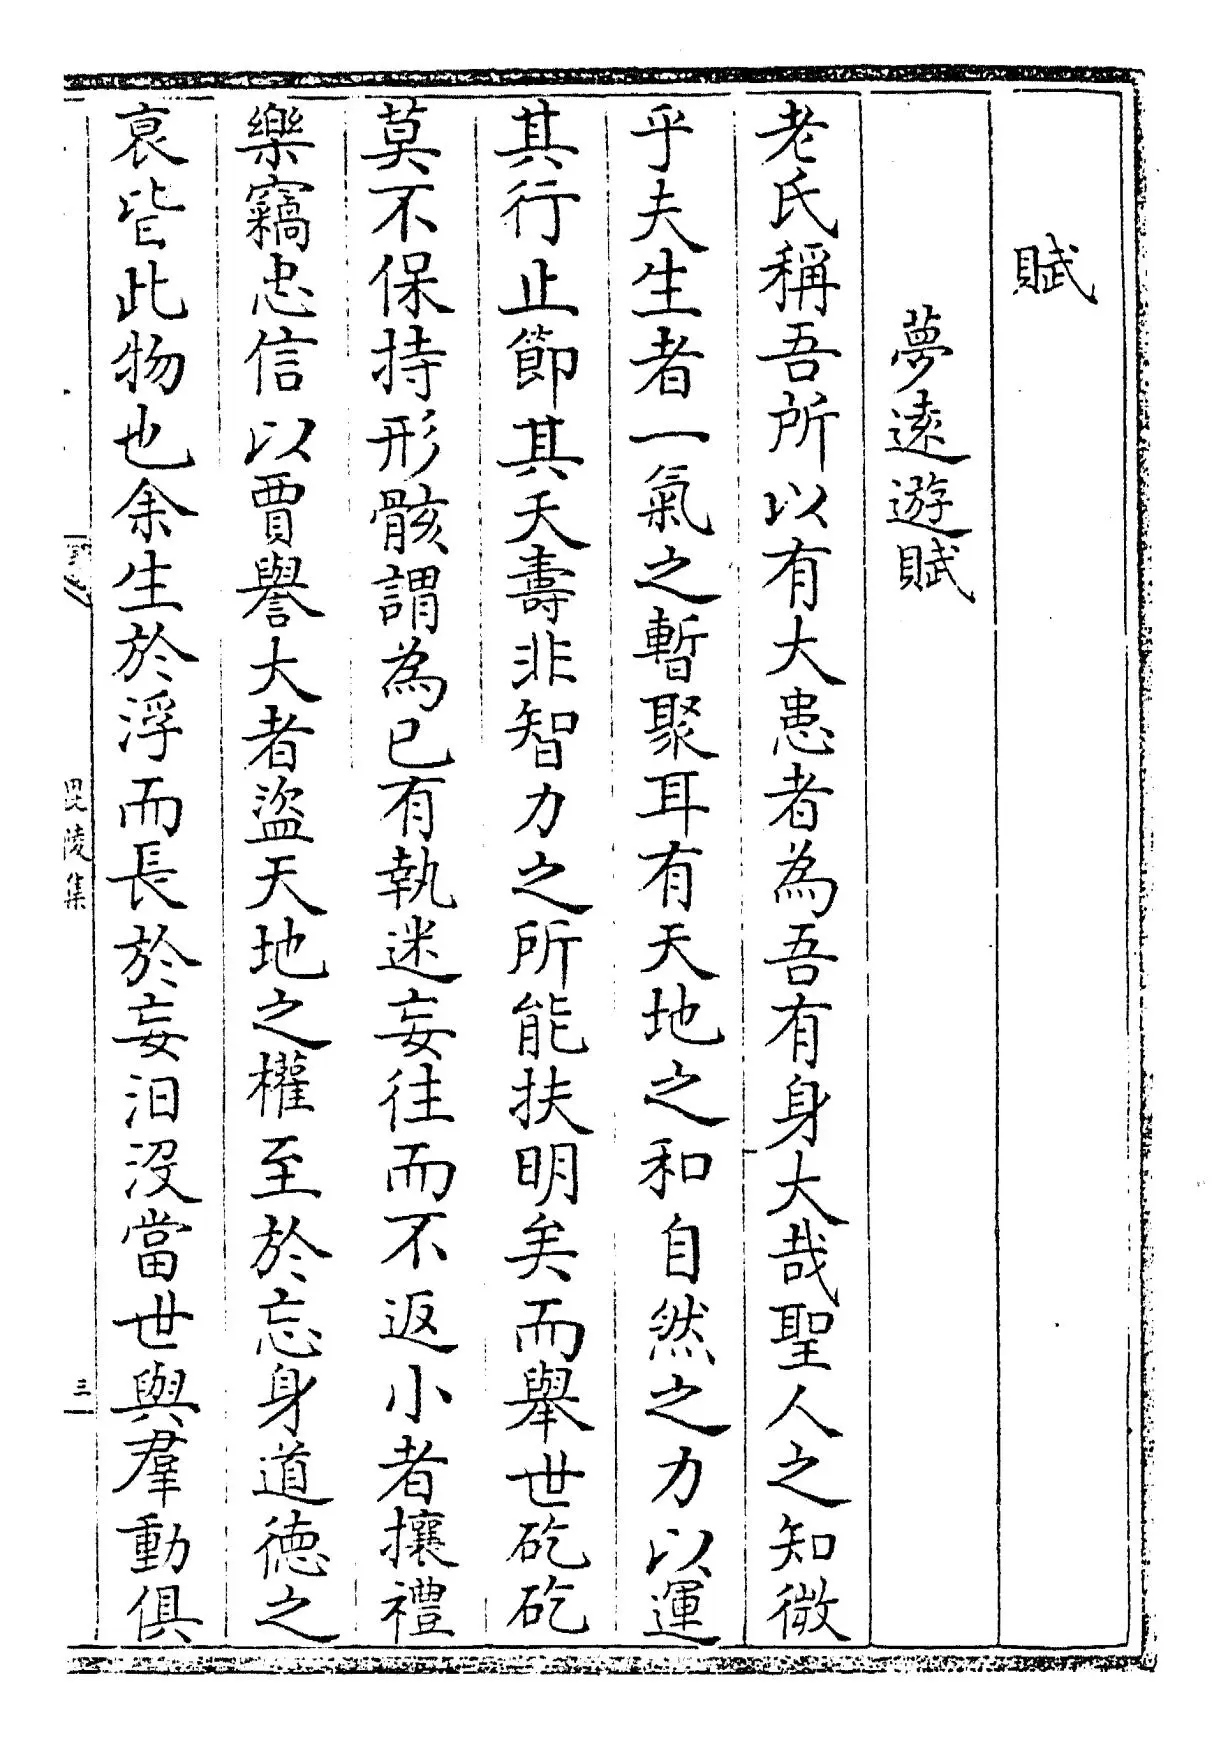 賦
夢遠遊賦
老氏稱吾所以有大患者為吾有身大哉聖人之知微
乎夫生者一氣之暫聚耳有天地之和自然之力以運
其行止節其夭壽非智力之所能扶明矣而舉世矻矻
莫不保持形骸謂為已有執迷妄往而不返小者攘禮
樂竊忠信以賈譽大者盜天地之權至於忘身道德之
哀皆此物也余生於浮而長於妄汩沒當世與羣動俱
毘陵集
三